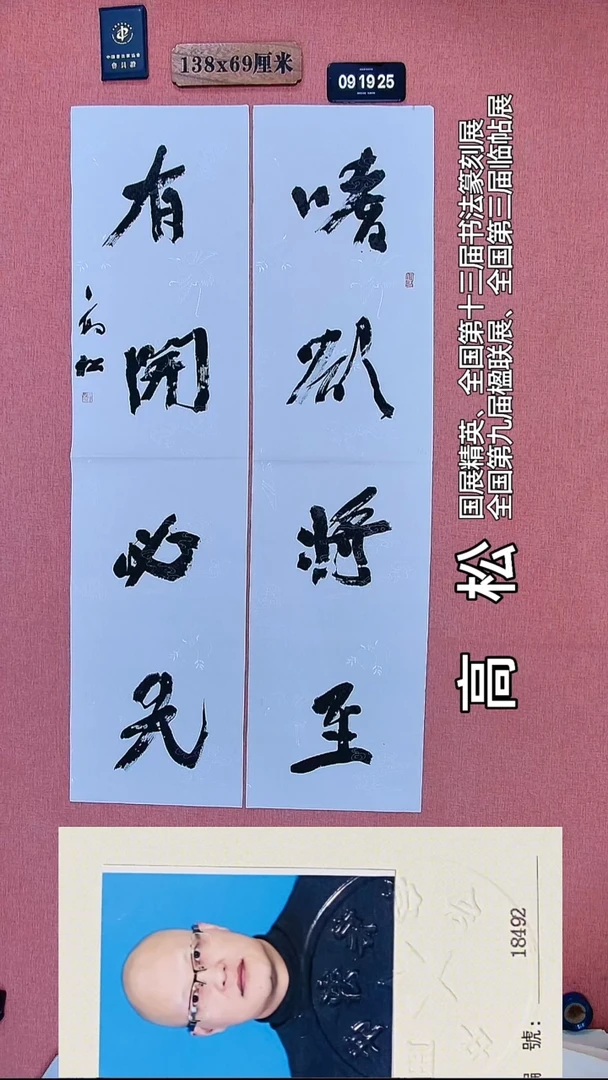 中国書法家協會
會員證
138x69厘米
09 19 25
嗜欲將至
有開必先
高松
高松
国展精英、全国第十三届书法篆刻展
全国第九届楹联展、全国第三届临帖展
號: 18492